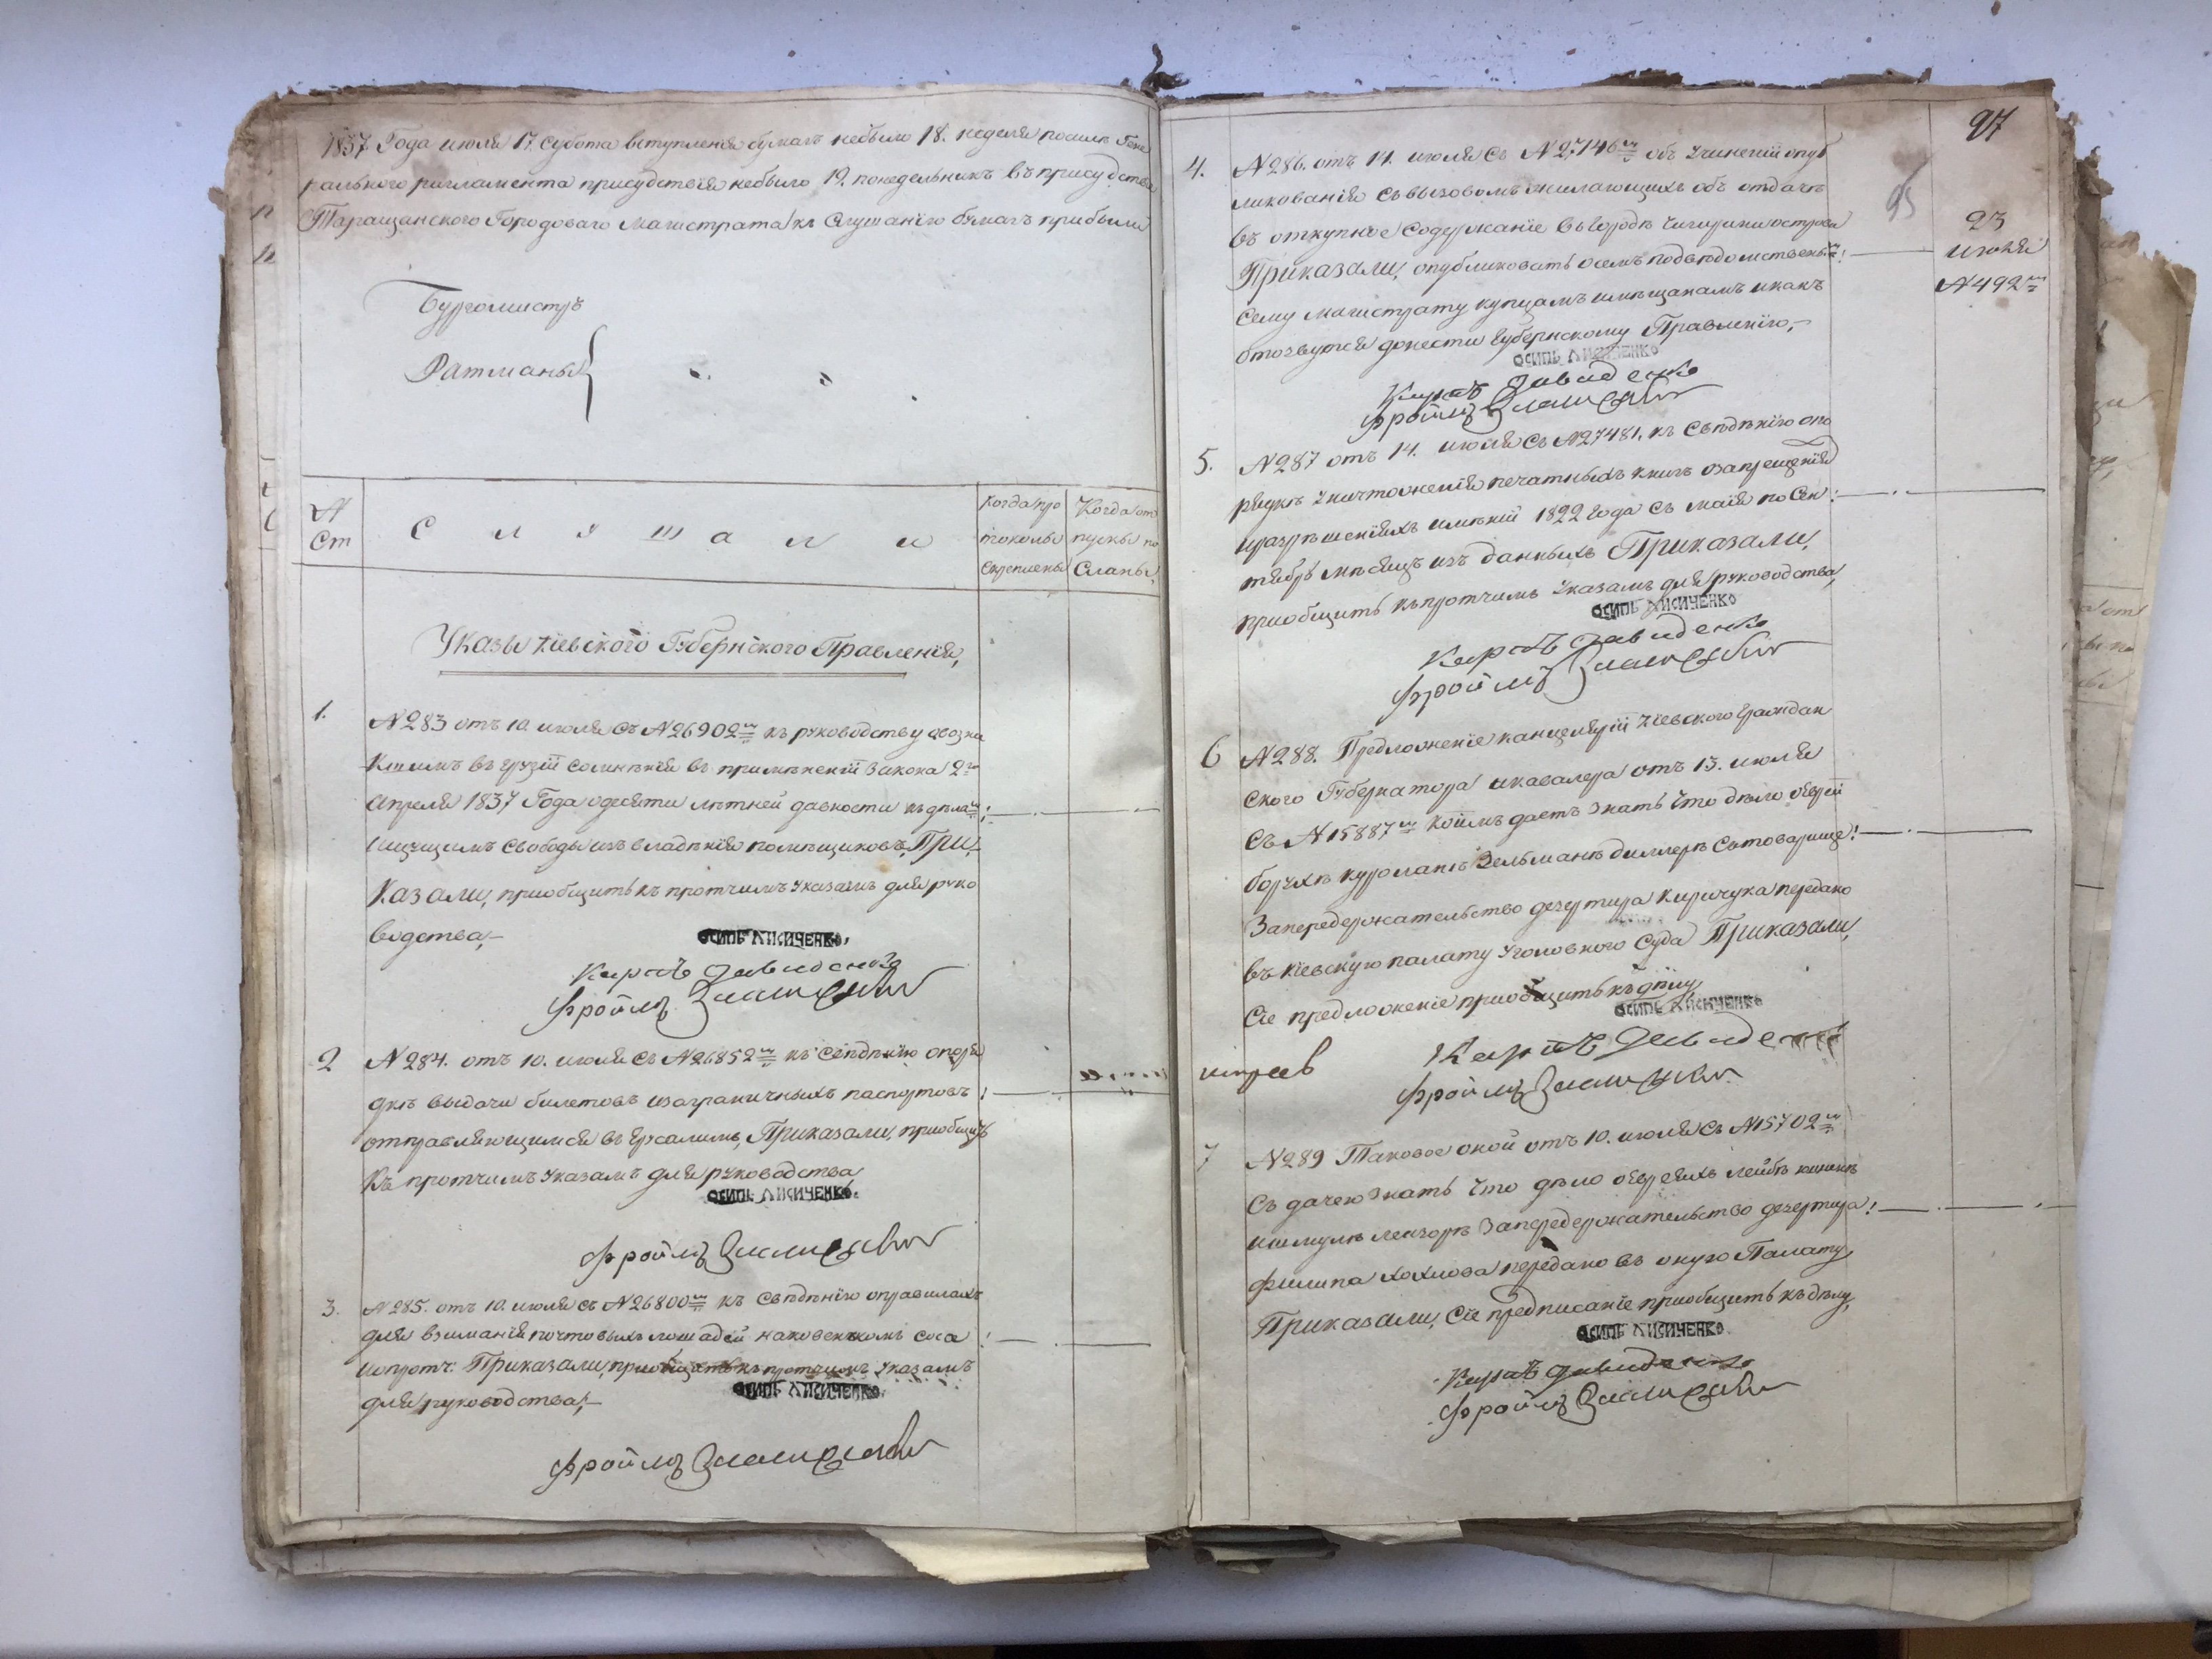 1837 Года июля 17. субота вступленія бумагъ небыло 18. неделя посилѣ Гене
рального ригламента присудствія небыло 19. понедельникъ въ присудствіе
Таращанского Городоваго Магистрата къ слушанію бумагъ прибыли
Бургомистръ
Ратманы
№
Ст
Слушали
Когда про
токолы
скреплены
Когда от
пуски по
сланы,
Указы Кіевского Губернского Правленія,
1.
№ 283 отъ 10. июля съ № 26902мъ къ руководству о возни
кшимъ въ Грузіи сомнѣніи въ примѣненіи закона 2го
апреля 1837 Года о десяти лѣтней давности къ дѣламъ
ищущимъ свободы изъ владѣнія помѣщиковъ, При
казали, приобщить къ протчимъ указамъ для руко
водства,
Осипъ Лисиченко,
Карпъ Давиденко
Фроимъ
2
№ 284. отъ 10. июля съ № 26852мъ къ свѣдѣнію о поря
дкѣ выдачи билетовъ и заграничныхъ паспортовъ
отправляющимся въ Ерусалимъ, Приказали, приобщить
къ протчимъ указамъ для руководства
Осипъ Лисиченко.
Фроимъ
3.
№ 285. отъ 10. июля съ № 26800мъ къ свѣдѣнію о правилахъ
для взиманія почтовыхъ лошадей
и протч: Приказали, приобщить къ протчимъ указамъ
для руководства,
Осипъ Лисиченко,
Фроимъ
97
95
4.
№ 286. отъ 14. июля съ № 27146мъ объ учиненіи опуб
ликованія съ вызовомъ жилающихъ объ отдачѣ
въ откупное содержаніе въ городѣ Чигирини острова
Приказали, опубликовать всемъ подведомственымъ
сему магистрату купцамъ имѣщанамъ икакъ
отозвутся донести Губернскому Правленію,
23
июля
№ 492мъ
Осипъ Лисиченко
Карпъ Давиденко
Фроимъ
5.
№ 287 отъ 14. июля съ № 27481, къ свѣдѣнію о по
рядкѣ уничтоженія печатныхъ книгъ о запрещеніяхъ
и разрѣшеніяхъ имѣній 1822 года съ маія по Сен
тябрь мѣсяцъ изъ данныхъ Приказали,
приобщить къ протчимъ указамъ для руководства,
Осипъ Лисиченко
Карпъ Давиденко
Фроимъ
6
№ 288. Предложеніе канцеляріи Кіевского Граждан
ского Губернатора икавалера отъ 13. июля
съ № 15887мъ коимъ даетъ знать что дѣло о Евреи
Зельманѣ съ товарище
за передержательство дезертира Киричука передано
въ Кіевскую палату Уголовного Суда Приказали,
Сіе предложеніе приобщить къ дѣлу,
Осипъ Лисиченко
Карпъ Давиденко
Фроимъ
7
№ 289 Таковое оной отъ 10. июля съ № 15702мъ
съ дачею знать что дѣло о Евреяхъ Лейбѣ
и Шмулѣ за передержательство дезертира
Филипа Хохлова передано въ оную Палату
Приказали, Сіе предписаніе приобщить къ дѣлу,
Осипъ Лисиченко
Карпъ Давиденко
Фроимъ